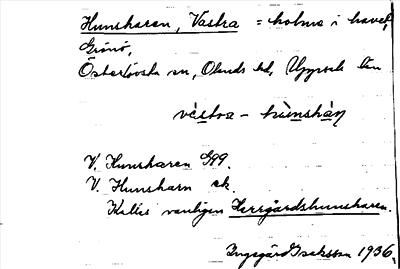 Hunsharen, Västra = holme i havet,
Gräsö,
Österlövsta sn, Olands hd, Uppsala län
västra - hùnshàr
V. Hunsharen GÄ9.
V. Hunsharn ek.
Kallas vanligen Herrgårdshunsharen.
Ingegärd Isaksson 1936.